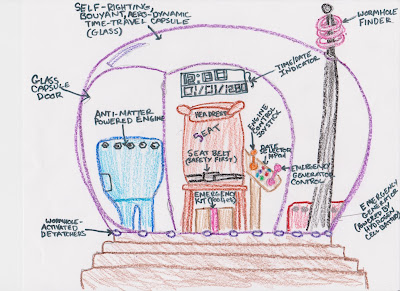 SELF-RIGHTING,
BOUYANT, AERO-DYNAMIC
TIME-TRAVEL CAPSULE
(GLASS)
WORMHOLE
FINDER
GLASS
CAPSULE
DOOR
TIME/DATE
INDICATOR
ANTI-MATTER
POWERED ENGINE
HEADREST
SEAT
SEAT BELT
(SAFETY FIRST)
ENGINE
CONTROL
JOYSTICK
DATE
SELECTOR
EMERGENCY
GENERATOR
CONTROL
EMERGENCY
WORMHOLE-
ACTIVATED
DETATCHERS
EMERGENCY
GENERATOR
(POWERED BY
HYDROGEN
CELL BATTERY)